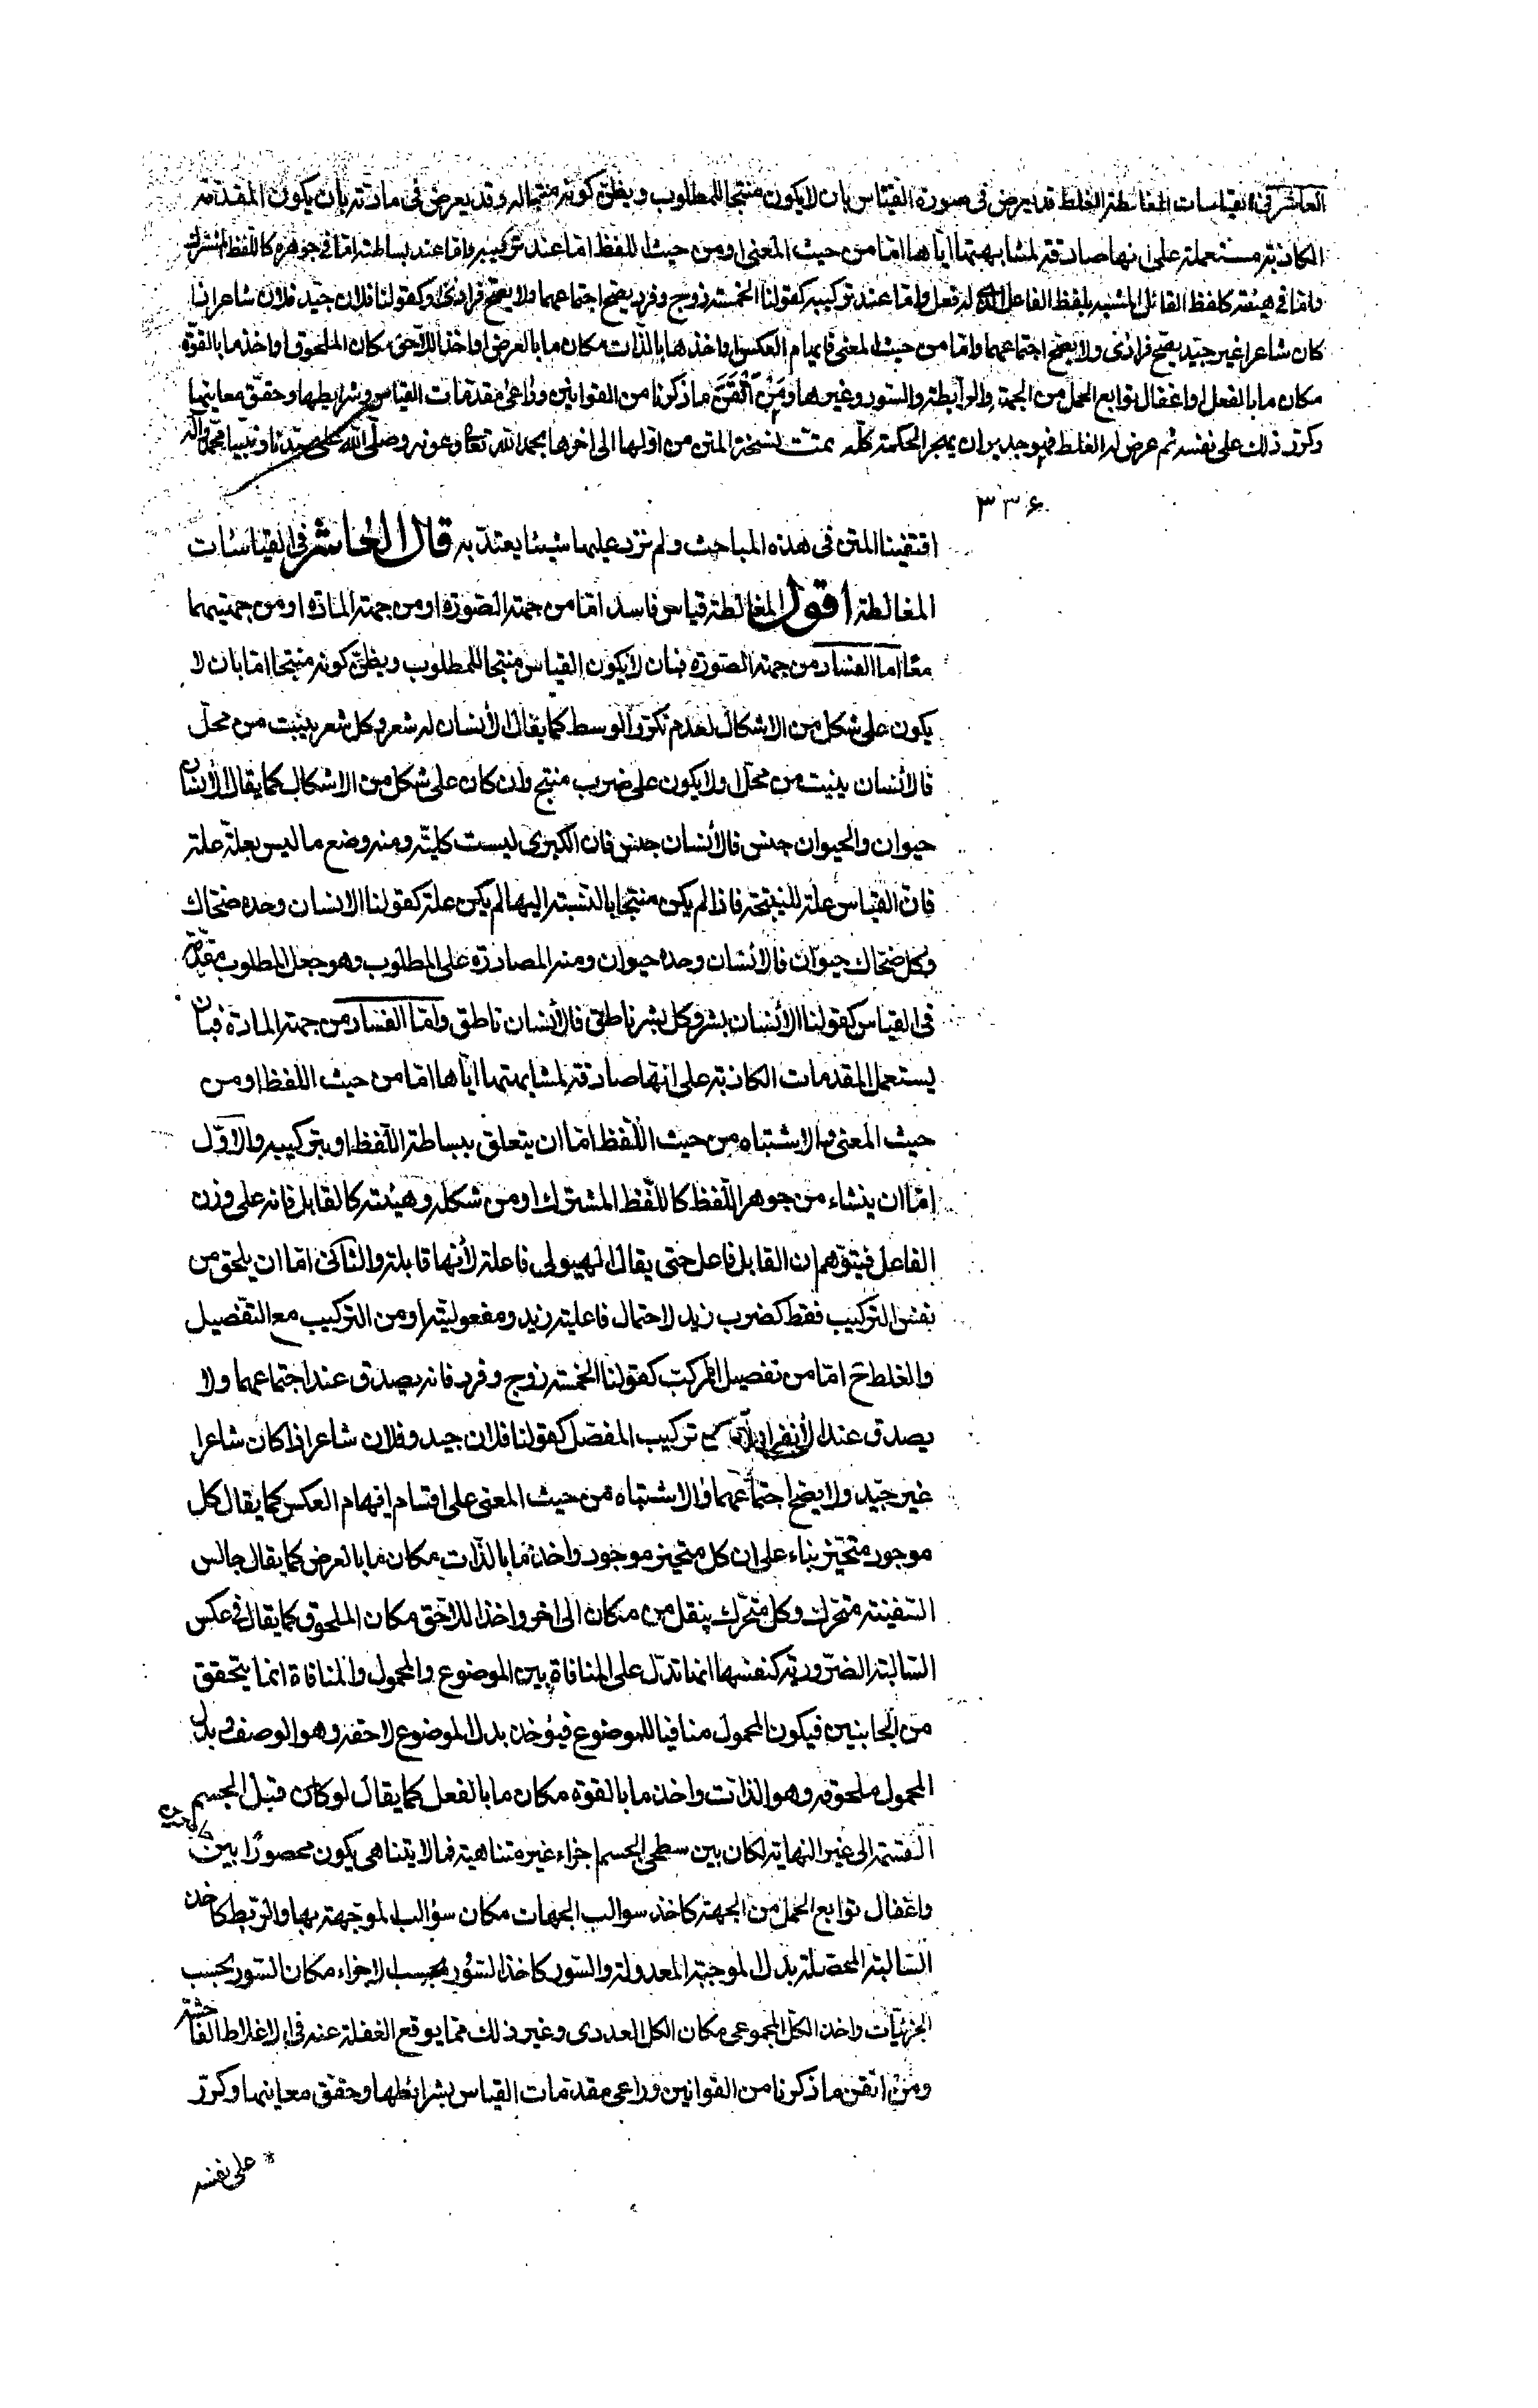 العاشر في القياسات المغالطة الغلط قد يعرض في صورة القياس بان لا يكون منتجا للمطلوب ويظن كونه منتجا له وقد يعرض في مادته بان يكون المقدمة
الكاذبة مستعملة على انها صادقة لمشابهتها اياها اما من حيث المعنى او من حيث اللفظ اما عند تركيبه واما عند بساطته اما في جوهره كاللفظ المشترك
واما في هيئته كلفظ القائل المشتبه بلفظ الفاعل له فعل واما عند تركيبه كقولنا الخمسة زوج وفرد يصح اجتماعهما ولا يصح فرادى وكقولنا فلان جيد فلان شاعر اذا
كان شاعرا غير جيد يصح فرادى ولا يصح اجتماعهما واما من حيث المعنى فايهام العكس واخذ ما بالذات مكان ما بالعرض او اخذ اللاحق مكان الملحوق او اخذ ما بالقوة
مكان ما بالفعل او اغفال توابع الحمل من الجهة والرابطة والسور وغيرها ومن اتقن ما ذكرنا من القوانين وراعى مقدمات القياس وشرايطها وحقق معاينها
وكرر ذلك على نفسه ثم عرض له الغلط فهو جدير ان يهجر الحكمة كله تمت نسخة المتن من اولها الى اخرها بحمد الله تعالى وعونه وصلى الله على سيدنا ونبينا محمد واله
٣٣٦
اقتفينا المتن في هذه المباحث ولم نزد عليها شيئا يعتد به قال العاشر في القياسات
المغالطة اقول المغالطة قياس فاسد اما من جهة الصورة او من جهة المادة او من جهتيهما
معا اما الفساد من جهة الصورة فبان لا يكون القياس منتجا للمطلوب ويظن كونه منتجا اما بان لا
يكون على شكل من الاشكال لعدم تكرر الوسط كما يقال الأنسان له شعر وكل شعر ينبت من محل
فالأنسان ينبت من محل او لا يكون على ضرب منتج وان كان على شكل من الاشكال كما يقال الأنسان
حيوان والحيوان جنس فالأنسان جنس فان الكبرى ليست كلية ومنه وضع ما ليس بعلة علة
فان القياس علة للنتيجة فاذا لم يكن منتجا بالنسبة اليها لم يكن علة كقولنا الانسان وحده ضحاك
وكل ضحاك حيوان فالأنسان وحده حيوان ومنه المصادرة على المطلوب وهو جعل المطلوب مقدمة
في القياس كقولنا الأنسان بشر وكل بشر ناطق فالأنسان ناطق واما الفساد من جهة المادة فبان
يستعمل المقدمات الكاذبة على انها صادقة لمشابهتها اياها اما من حيث اللفظ او من
حيث المعنى والاشتباه من حيث اللفظ اما ان يتعلق ببساطة اللفظ او بتركيبه والاول
اما ان ينشاء من جوهر اللفظ كاللفظ المشترك او من شكله وهيئته كالقابل فانه على وزن
الفاعل فيتوهم ان القابل فاعل حتى يقال الهيولى فاعلة لأنها قابلة والثاني اما ان يلحق من
نفس التركيب فقط كضرب زيد لاحتمال فاعلية زيد ومفعوليته او من التركيب مع التفصيل
والغلط ح اما من تفصيل المركب كقولنا الخمسة زوج وفرد فانه يصدق عند اجتماعهما ولا
يصدق عند الأنفراد تركيب المفصل كقولنا فلان جيد وفلان شاعر اذا كان شاعرا
غير جيد ولا يصح اجتماعهما والاشتباه من حيث المعنى على اقسام ايهام العكس كما يقال كل
موجود متحيز بناء على ان كل متحيز موجود واخذ ما بالذات مكان ما بالعرض كما يقال جالس
السفينة متحرك وكل متحرك ينقل من مكان الى اخر واخذ اللاحق مكان الملحوق كما يقال في عكس
السالبة الضرورية كنفسها انما تدل على المنافاة بين الموضوع والمحمول والمنافاة انما يتحقق
من الجانبين فيكون المحمول منافيا للموضوع فيؤخذ بدل الموضوع لاحقه وهو الوصف وبدل
المحمول ملحوقه وهو الذات واخذ ما بالقوة مكان ما بالفعل كما يقال لو كان قبل الجسم
القسمة الى غير النهاية لكان بين سطحي الجسم اجزاء غير متناهية فما لا يتناهى يكون محصورا بين
واغفال توابع الحمل من الجهة كاخذ سوالب الجهات مكان سوالب الموجهة بها والربط كاخذ
السالبة المحصلة بدل الموجبة المعدولة والسور كاخذ السور بحسب الاجزاء مكان السور بحسب
الجزئيات واخذ الكل المجموعي مكان الكل العددي وغير ذلك مما يوقع الغفلة عنه في الاغلاط الفاحشة
ومن اتقن ما ذكرنا من القوانين وراعى مقدمات القياس بشرائطها وحقق معاينها وكرر
* على نفسه